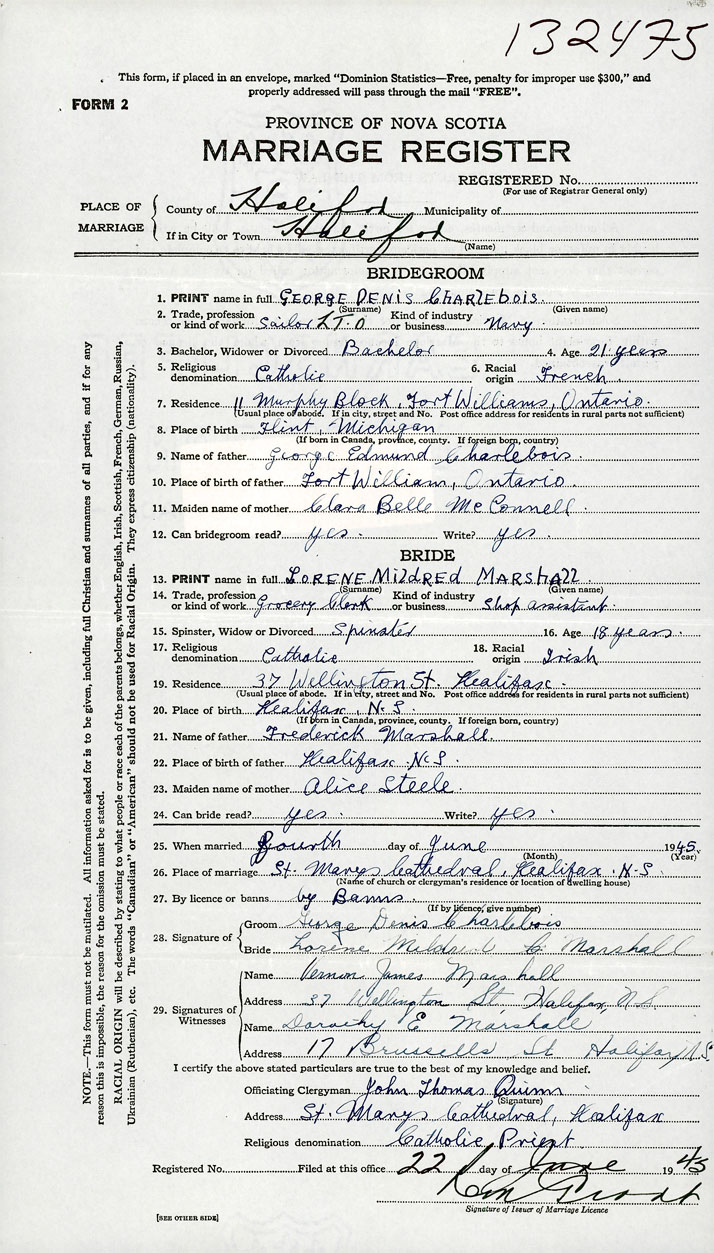 132475
This form, if placed in an envelope, marked "Dominion Statistics—Free, penalty for improper use $300," and
properly addressed will pass through the mail "FREE".
FORM 2
PROVINCE OF NOVA SCOTIA
MARRIAGE REGISTER
REGISTERED No.
(For use of Registrar General only)
PLACE OF MARRIAGE
County of Halifax Municipality of
If in City or Town Halifax
(Name)
BRIDEGROOM
1. PRINT name in full GEORGE DENIS CHARLEBOIS.
(Surname) (Given name)
2. Trade, profession or kind of work Sailor L.T.O Kind of industry or business Navy
3. Bachelor, Widower or Divorced Bachelor 4. Age 21 years
5. Religious denomination Catholic 6. Racial origin French
7. Residence 11 Murphy Block, Fort Williams, Ontario.
(Usual place of abode. If in city, street and No. Post office address for residents in rural parts not sufficient)
8. Place of birth Flint, Michigan
(If born in Canada, province, county. If foreign born, country)
9. Name of father George Edmund Charlebois.
10. Place of birth of father Fort William, Ontario.
11. Maiden name of mother Clara Belle McConnell.
12. Can bridegroom read? yes. Write? yes.
BRIDE
13. PRINT name in full LORENE MildRED MARSHALL.
(Surname) (Given name)
14. Trade, profession or kind of work Grocery Clerk Kind of industry or business Shop assistant.
15. Spinster, Widow or Divorced Spinster 16. Age 18 years.
17. Religious denomination Catholic 18. Racial origin Irish
19. Residence 37 Wellington St. Halifax.
(Usual place of abode. If in city, street and No. Post office address for residents in rural parts not sufficient)
20. Place of birth Halifax, N.S.
(If born in Canada, province, county. If foreign born, country)
21. Name of father Frederick Marshall.
22. Place of birth of father Halifax N.S.
23. Maiden name of mother Alice Steele.
24. Can bride read? yes. Write? yes.
25. When married Fourth day of June 1945.
(Month) (Year)
26. Place of marriage St. Marys Cathedral, Halifax. N.S.
(Name of church or clergyman's residence or location of dwelling house)
27. By licence or banns by Banns.
(If by licence, give number)
28. Signature of
Groom George Denis Charlebois
Bride Lorene Mildred C. Marshall
29. Signatures of Witnesses
Name Vernon James Marshall
Address 37 Wellington St Halifax, N.S.
Name Dorothy E Marshall
Address 17 Brussells St Halifax N.S.
I certify the above stated particulars are true to the best of my knowledge and belief.
Officiating Clergyman John Thomas Quinn
(Signature)
Address St. Marys Cathedral, Halifax
Religious denomination Catholic Priest.
Registered No. Filed at this office 22 day of June 1945
Signature of Issuer of Marriage Licence
[SEE OTHER SIDE]
NOTE.—This form must not be mutilated. All information asked for is to be given, including full Christian and surnames of all parties, and if for any
reason this is impossible, the reason for the omission must be stated.
RACIAL ORIGIN will be described by stating to what people or race each of the parents belongs, whether English, Irish, Scottish, French, German, Russian,
Ukrainian (Ruthenian), etc. The words "Canadian" or "American" should not be used for Racial Origin. They express citizenship (nationality).